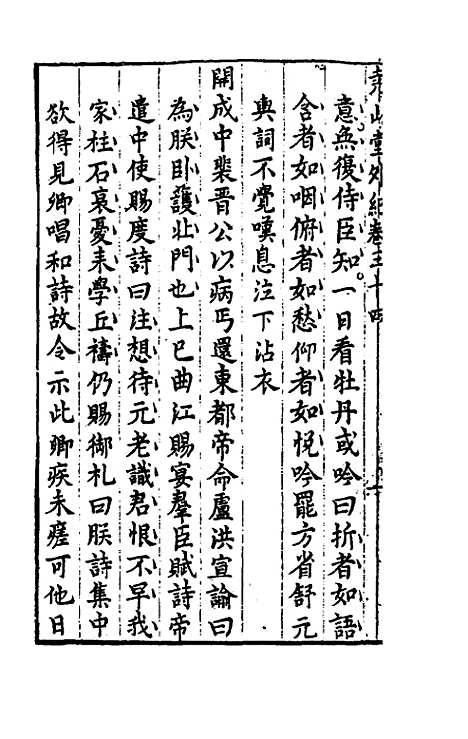 堯山堂外紀卷三十四
意無復侍臣知。一日看牡丹或吟曰折者如語
含者如咽俯者如愁仰者如悅吟罷方省舒元
輿詞不覺嘆息泣下沾衣
開成中裴晉公以病丐還東都帝命盧洪宣諭曰
為朕臥護北門也上巳曲江賜宴羣臣賦詩帝
遣中使賜度詩曰注想待元老識君恨不早我
家柱石衰憂来學丘禱仍賜御札曰朕詩集中
欲得見卿唱和詩故令示此卿疾未瘥可他日